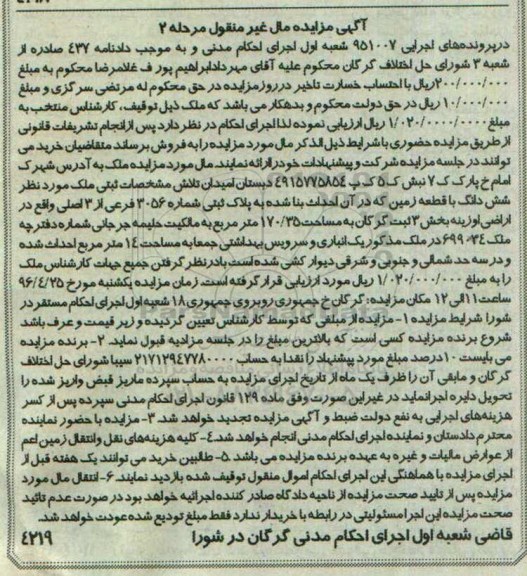 آگهی مزایده مال غیر منقول مرحله ۲
درپرونده‌های اجرایی ۹۵۱۰۰۷ شعبه اول اجرای احکام مدنی و به موجب دادنامه ۴۳۷ صادره از
شعبه ۳ شورای حل اختلاف گرگان محکوم علیه آقای مهردادابراهیم پور ف غلامرضا محکوم به مبلغ
۲۰۰/۰۰۰/۰۰۰ریال با احتساب خسارت تاخیر درروزمزایده در حق محکوم له مرتضی سرگزی و مبلغ
۱۰/۰۰۰/۰۰۰ ریال در حق دولت محکوم و بدهکار می باشد که ملک ذیل توقیف، کارشناس منتخب به
مبلغ ۱/۰۲۰/۰۰۰۰/۰۰۰۰ ریال ارزیابی نموده لذا اجرای احکام در نظر دارد پس از انجام تشریفات قانونی
از طریق مزایده حضوری با شرایط ذیل الذکر مال مورد مزایده را به فروش برساند متقاضیان خرید می
توانند در جلسه مزایده شرکت و پیشنهادات خود را ارائه نمایند. مال مورد مزایده ملک به آدرس شهرک
امام خ پارک ک ۷ نبش ک۵ ک پ ۴۹۱۵۷۷۵۸۵۴ دبستان امیدان تلاش مشخصات ثبتی ملک مورد نظر
شش دانگ با قطعه زمین که در آن احداث بنا شده به پلاک ثبتی شماره ۳۰۵۶ فرعی از ۳ اصلی واقع در
اراضی اوزینه بخش ۳ ثبت گرگان به مساحت ۱۷۰/۳۵ متر مربع به مالکیت حلیمه جرجانی شماره دفترچه
ملک ۶۹۹۰۳۴ در ملک مذکور یک انباری و سرویس بهداشتی جمعا به مساحت ۱۴ متر مربع احداث شده
و در سه حد شمالی و جنوبی و شرقی دیوار کشی شده است با در نظر گرفتن جمیع جهات کارشناس ملک
را به مبلغ ۱/۰۲۰/۰۰۰/۰۰۰ ریال مورد ارزیابی قرار گرفته است. زمان مزایده یکشنبه مورخ ۹۶/۴/۲۵
ساعت ۱۱ الی ۱۲ مکان مزایده: گرگان خ جمهوری روبروی جمهوری ۱۸ شعبه اول اجرای احکام مستقر در
شورا شرایط مزایده ۱- مزایده از مبلغی که توسط کارشناس تعیین گردیده و زیر قیمت و عرف باشد
شروع برنده مزایده کسی است که بالاترین مبلغ را در جلسه مزایده قبول نماید. ۲- برنده مزایده
می بایست ۱۰درصد مبلغ مورد پیشنهاد را نقدا به حساب ۲۱۷۱۲۹۴۷۷۸۰۰۰۰ سیبا شورای حل اختلاف
گرگان و مابقی آن را ظرف یک ماه از تاریخ اجرای مزایده به حساب سپرده ماریز قبض واریز شده را
تحویل دایره اجرا نماید در غیر این صورت وفق ماده ۱۲۹ قانون اجرای احکام مدنی سپرده پس از کسر
هزینه‌های اجرایی به نفع دولت ضبط و آگهی مزایده تجدید خواهد شد. ۳- مزایده با حضور نماینده
محترم دادستان و نماینده اجرای احکام مدنی انجام خواهد شد. ۴- کلیه هزینه‌های نقل وانتقال زمین اعم
از عوارض مالیات و غیره به عهده برنده مزایده می باشد. ۵- طالبین خرید می توانند یک هفته قبل از
اجرای مزایده با هماهنگی این اجرای احکام اموال منقول توقیف شده بازدید نمایند. ۶- انتقال مال مورد
مزایده پس از تایید صحت مزایده از ناحیه دادگاه صادر کننده اجرائیه خواهد بود در صورت عدم تائید
صحت مزایده این اجرا مسئولیتی در رابطه با خریدار ندارد فقط مبلغ تودیع شده عودت خواهد شد.
قاضی شعبه اول اجرای احکام مدنی گرگان در شورا ۴۲۱۹